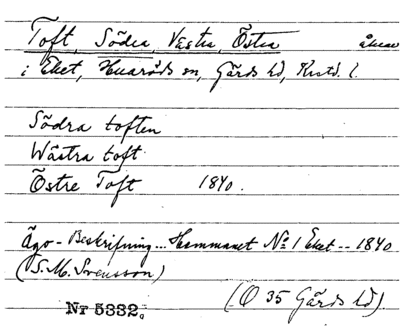 Toft, Södra, Västra, Östra åkrar
i Eket, Huaröds sn, Gärds hd, Krstd. l.
Södra toften
Wästra toft
Östre Toft 1840.
Ägo-Beskrifning... Hemmanet No 1 Eket -- 1840
(S. M. Svensson)
(O 35 Gärds hd).
Nr 5332.